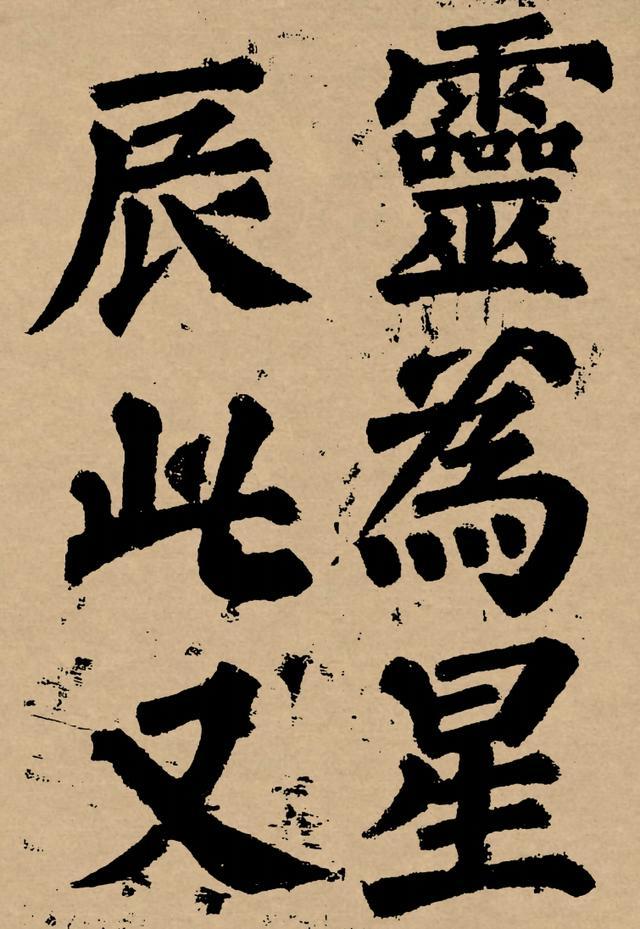 靈為星
辰此又